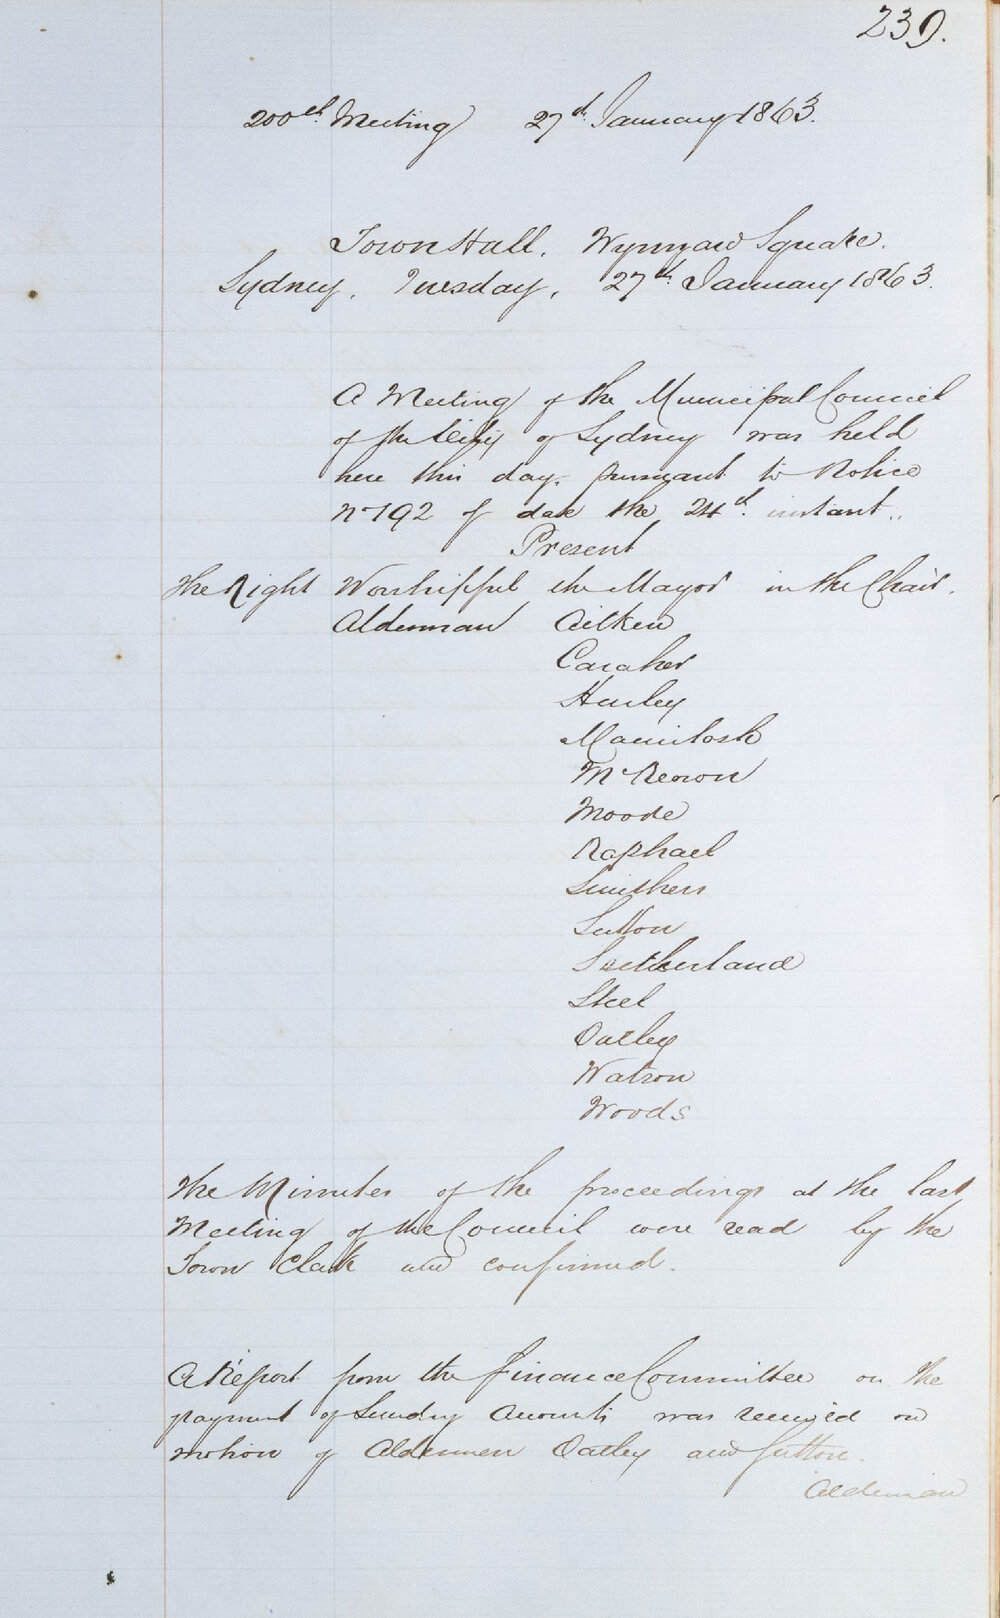 239.
200th. Meeting 27th. January 1863.
Town Hall. Wynyard Square.
Sydney. Tuesday, 27th. January 1863.
A Meeting of the Municipal Council
of the City of Sydney was held
here this day, pursuant to Notice
No 192 of date the 24th. instant.
Present
The Right Worshipful the Mayor in the Chair.
Alderman Aitken
Caraher
Hurley
Macintosh
McKeown
Moode
Raphael
Smithers
Sutton
Sutherland
Steel
Oatley
Watson
Woods
The Minutes of the proceedings at the last
Meeting of the Council were read by the
Town Clerk and confirmed.
A Report from the Finance Committee on the
payment of Sundry Accounts was received on
motion of Aldermen Oatley and Sutton.
Alderman